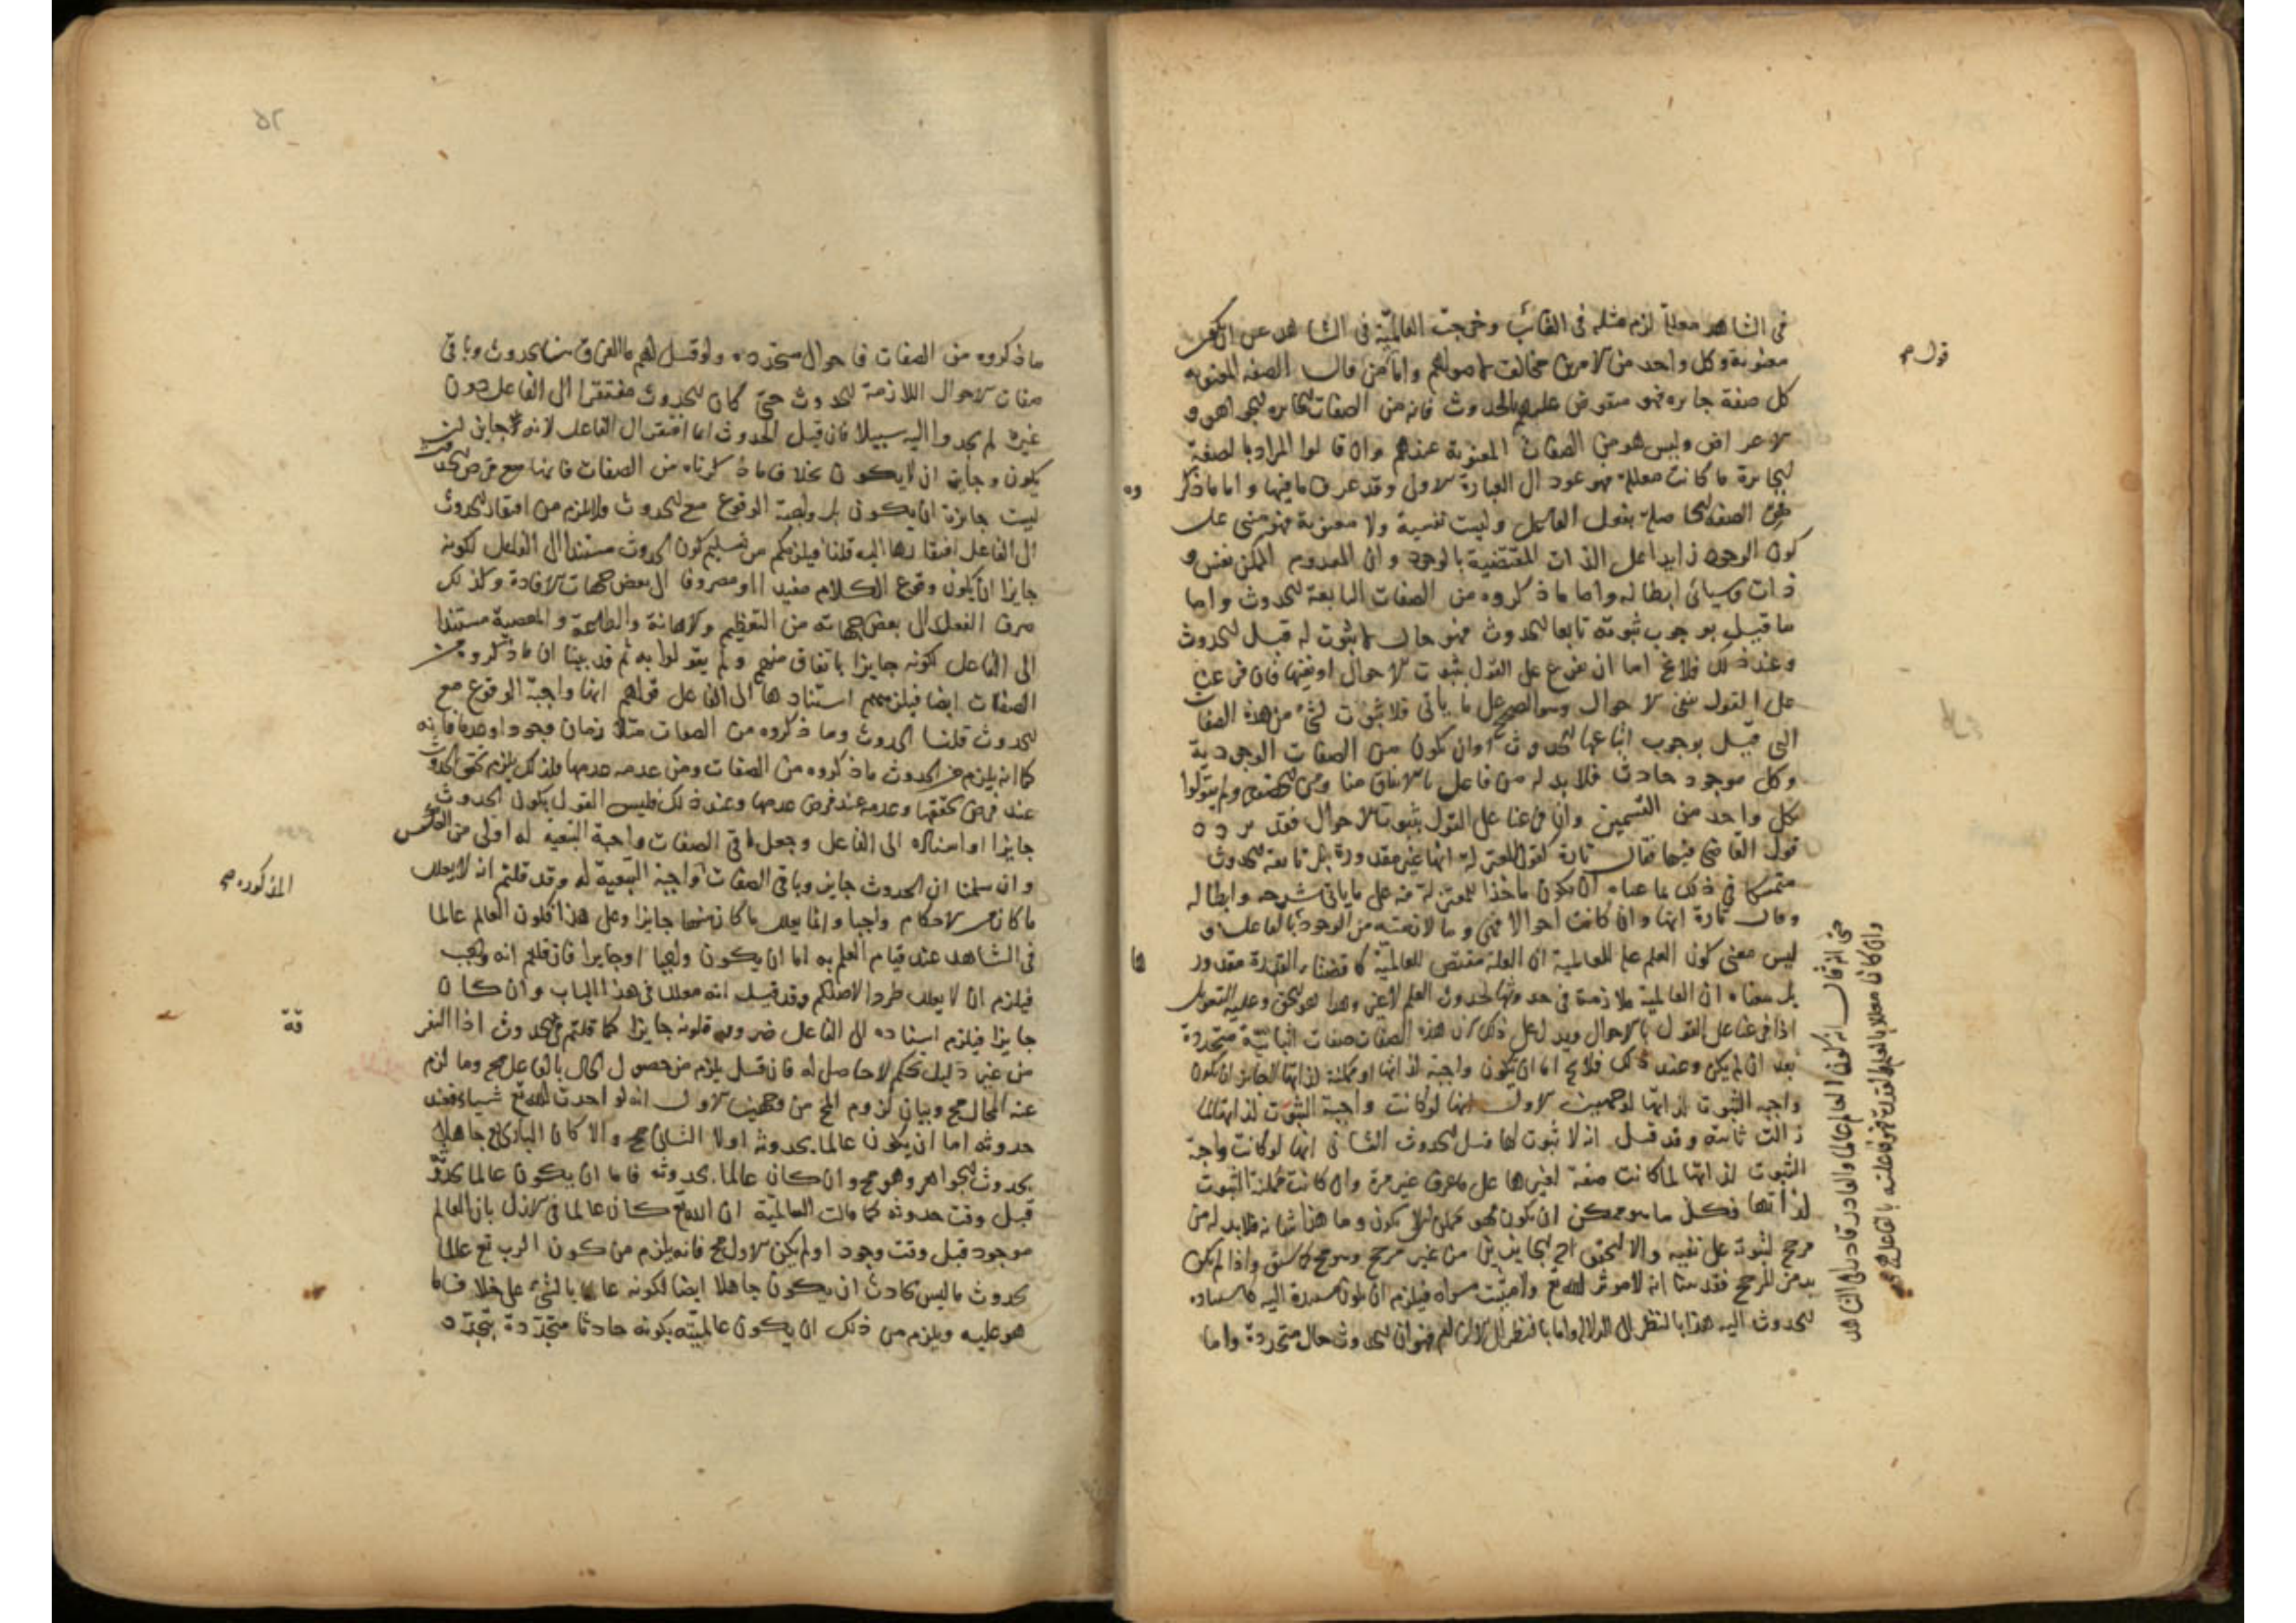 في الشاهد معللا لزم مثله في الغائب وخرجت العالمية في الشاهد عن ان تكون
معنوية وكل واحد من الامرين مخالف لاصولهم واما من قال الصفة المعنوية
كل صفة جايزه فهو منقوض عليهم بالحدوث فانه من الصفات الجايزه للجواهر و
الاعراض وليس هو من الصفات المعنوية عندهم وان قالوا المراد بالصفة
الجايزة ما كانت معللة فهو عود الى العبارة الاولى وقد عرف ما فيها واما ما ذكر
من الصفة الحاصلة بقول الفاعل وليست نفسية ولا معنوية فهو مبني على
كون الوجود زايدا على الذات المقتضية بالوجود وان المعدوم الممكن نفس و
ذات وسياتي ابطاله واما ما ذكروه من الصفات التابعة للحدوث واما
ما قيل بوجوب ثبوته تابعا للحدوث فهو حال لا ثبوت له قبل الحدوث
وعند ذلك فلا يخ اما ان نفرع على القول بثبوت الاحوال او نفيها فان فرعنا
على القول بنفي الاحوال وهو الصحيح على ما ياتي فلا ثبوت لشئ من هذه الصفات
التي قيل بوجوب اتباعها للحدوث او ان تكون من الصفات الوجودية
وكل موجود حادث فلا بد له من فاعل بالاتفاق منا ومن الخصوم ولم يقولوا
بكل واحد من القسمين وان فرعنا على القول بثبوت الاحوال فقد تردد
قول القاضي فيها فقال تارة كقول المعتزلة انها غير مقدورة بل تابعة للحدوث
متمسكا في ذلك بما عساه ان يكون ماخذا للمعتزلة فيه على ما ياتي شرحه وابطاله
وقال تارة انها وان كانت احوالا فهي وما لازمته من الوجود بالفاعل و
ليس معنى كون العلم علة للعالمية ان العلة مقتضى للعالمية كاقتضاء القدرة مقدور
بل معناه ان العالمية ملازمة في حدوثها لحدوث العلم لا غير وهذا هو الحق وعليه التعويل
اذا فرعنا على القول بالاحوال ويدل على ذلك ان هذه الصفات صفات اثباتية متجددة
بعد ان لم يكن وعند ذلك فلا يخ اما ان تكون واجبة لذاتها او ممكنة لذاتها لا جايز ان تكون
واجبه الثبوت لذاتها لوجهين الاول انها لوكانت واجبة الثبوت لذاتها لما
زالت ثابته وقد قيل انه لا ثبوت لها قبل الحدوث الثاني انها لوكانت واجبة
الثبوت لذاتها لما كانت صفة لغيرها على ما عرف غير مرة وان كانت ممكنة الثبوت
لذاتها فكل ما هو ممكن ان يكون فهو ممكن ان لا يكون وما هذا شانه فلا بد له من
مرجح لثبوته على نفيه والا لتحقق احد الجايزين من غير مرجح وهو مح كما سبق واذا لم يكن
بد من المرجح فقد بينا انه لا موثر الا الله تع ولا مثبت سواه فيلزم ان تكون مستندة اليه كاستناد
الحدوث اليه هذا بالنظر الى الدلالة واما بالنظر الى الالزام فهو ان الحدوث حال متجددة واما
قول صح
حتى انه قال ان كون العالم عالما والقادر قادرا في الشاهد
وان كانا معللا بالعلم والقدرة فهو فاعليته بالفاعل صح
ما ذكروه من الصفات فاحوال متجدده ولو قيل لهم ما الفرق بين الحدوث وباقي
صفات الاحوال اللازمة للحدوث حتى كان الحدوث مفتقرا الى الفاعل دون
غيره لم يجدوا اليه سبيلا فان قيل الحدوث انما افتقر الى الفاعل لانه جايز ان
يكون وجايز ان لا يكون بخلاف ما ذكرناه من الصفات فانها مع فرض الحدوث
ليست جايزة ان يكون بل واجبة الوقوع مع الحدوث ولا يلزم من افتقار الحدوث
الى الفاعل افتقارها اليه قلنا فيلزمكم من تسليم كون الحدوث مستندا الى الفاعل لكونه
جايزا ان يكون وقوع الكلام مفيدا او مصروفا الى بعض جهات الافادة وكذلك
صرف الفعل الى بعض جهاته من التعظيم والاهانة والطاعة والمعصية مستندا
الى الفاعل لكونه جايزا باتفاق منهم ولم يقولوا به ثم قد بينا ان ما ذكروه من
الصفات ايضا فيلزمهم استنادها الى الفاعل قولهم انها واجبة الوقوع مع
الحدوث قلنا الحدوث وما ذكروه من الصفات متلازمان وجودا وعدما فانه
كما انه يلزم من الحدوث ما ذكروه من الصفات ومن عدمه عدمها فكذلك يلزم تحقق الحدوث
عند فرض تحققها وعدمه عند فرض عدمها وعند ذلك فليس القول بكون الحدوث
جايزا او اسناده الى الفاعل وجعل باقي الصفات واجبة التبعية له اولى من العكس
وان سلمنا ان الحدوث جايز وباقي الصفات واجبة التبعية له وقد قلتم انه لا يعلل
ما كان من الاحكام واجبا وانما يعلل ما كان منها جايزا وعلى هذا فكون العالم عالما
في الشاهد عند قيام العلم به اما ان يكون واجبا او جايزا فان قلتم انه واجب
فيلزم ان لا يعلل طردا لاصلكم وقد قيل انه معللا في هذا الباب وان كان
جايزا فيلزم اسناده الى الفاعل ضرورة كونه جايزا كما قلتم في الحدوث اذ الفرق
من غير دليل تحكم لا حاصل له فان قيل يلزم من حصول الحال بالفاعل مح وما لزم
عنه المحال مح وبيان لزوم المح من وجهين الاول انه لو احدث الله تع شيا فعند
حدوثه اما ان يكون عالما بحدوثه اولا الثاني مح والا كان الباري تع جاهلا
بحدوث الجواهر وهو مح وان كان عالما بحدوثه فاما ان يكون عالما بحدوثه
قبل وقت حدوثه كما قالت العالمية ان الله تع كان عالما في الازل بان العالم
موجود قبل وقت وجود اولم يكن الاول مح فانه يلزم من كون الرب تع عالما
بحدوث ما ليس بحادث ان يكون جاهلا ايضا لكونه عالما بالشئ على خلاف ما
هو عليه ويلزم من ذلك ان يكون عالميته بكونه حادثا متجددة بتجدد
المذكوره صح